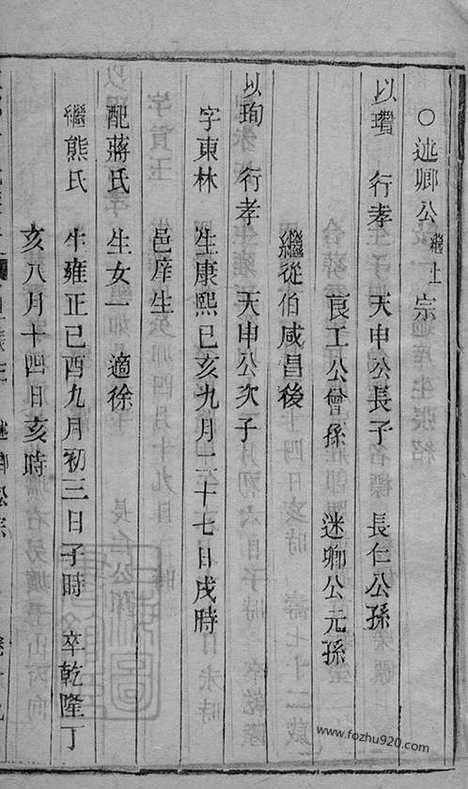 ○述卿公繼上宗
以瓚 行孝 天申公長子 長仁公孫
良工公曾孫 述卿公元孫
繼從伯咸昌後
以珣 行孝 天申公次子
字東林 生康熙己亥九月二十七日戌時
邑庠生
配蔣氏 生女一 適徐
繼熊氏 生雍正己酉九月初三日子時 卒乾隆丁
亥八月十四日亥時
www.fozhu920.com